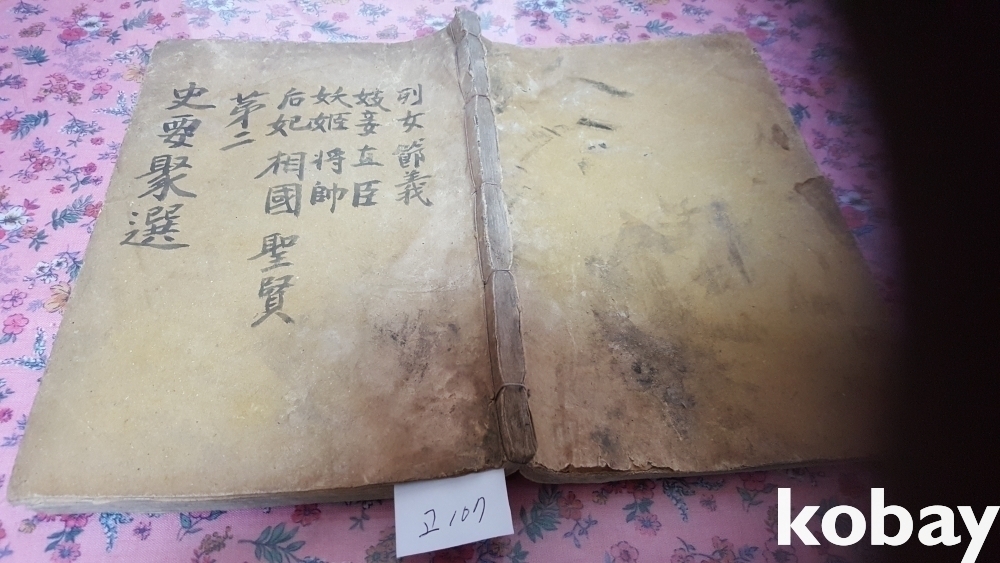 列女 節義
妓妾 直臣
妖姬 将帥
后妃 相國 聖賢
第二
史要聚選
고107
kobay